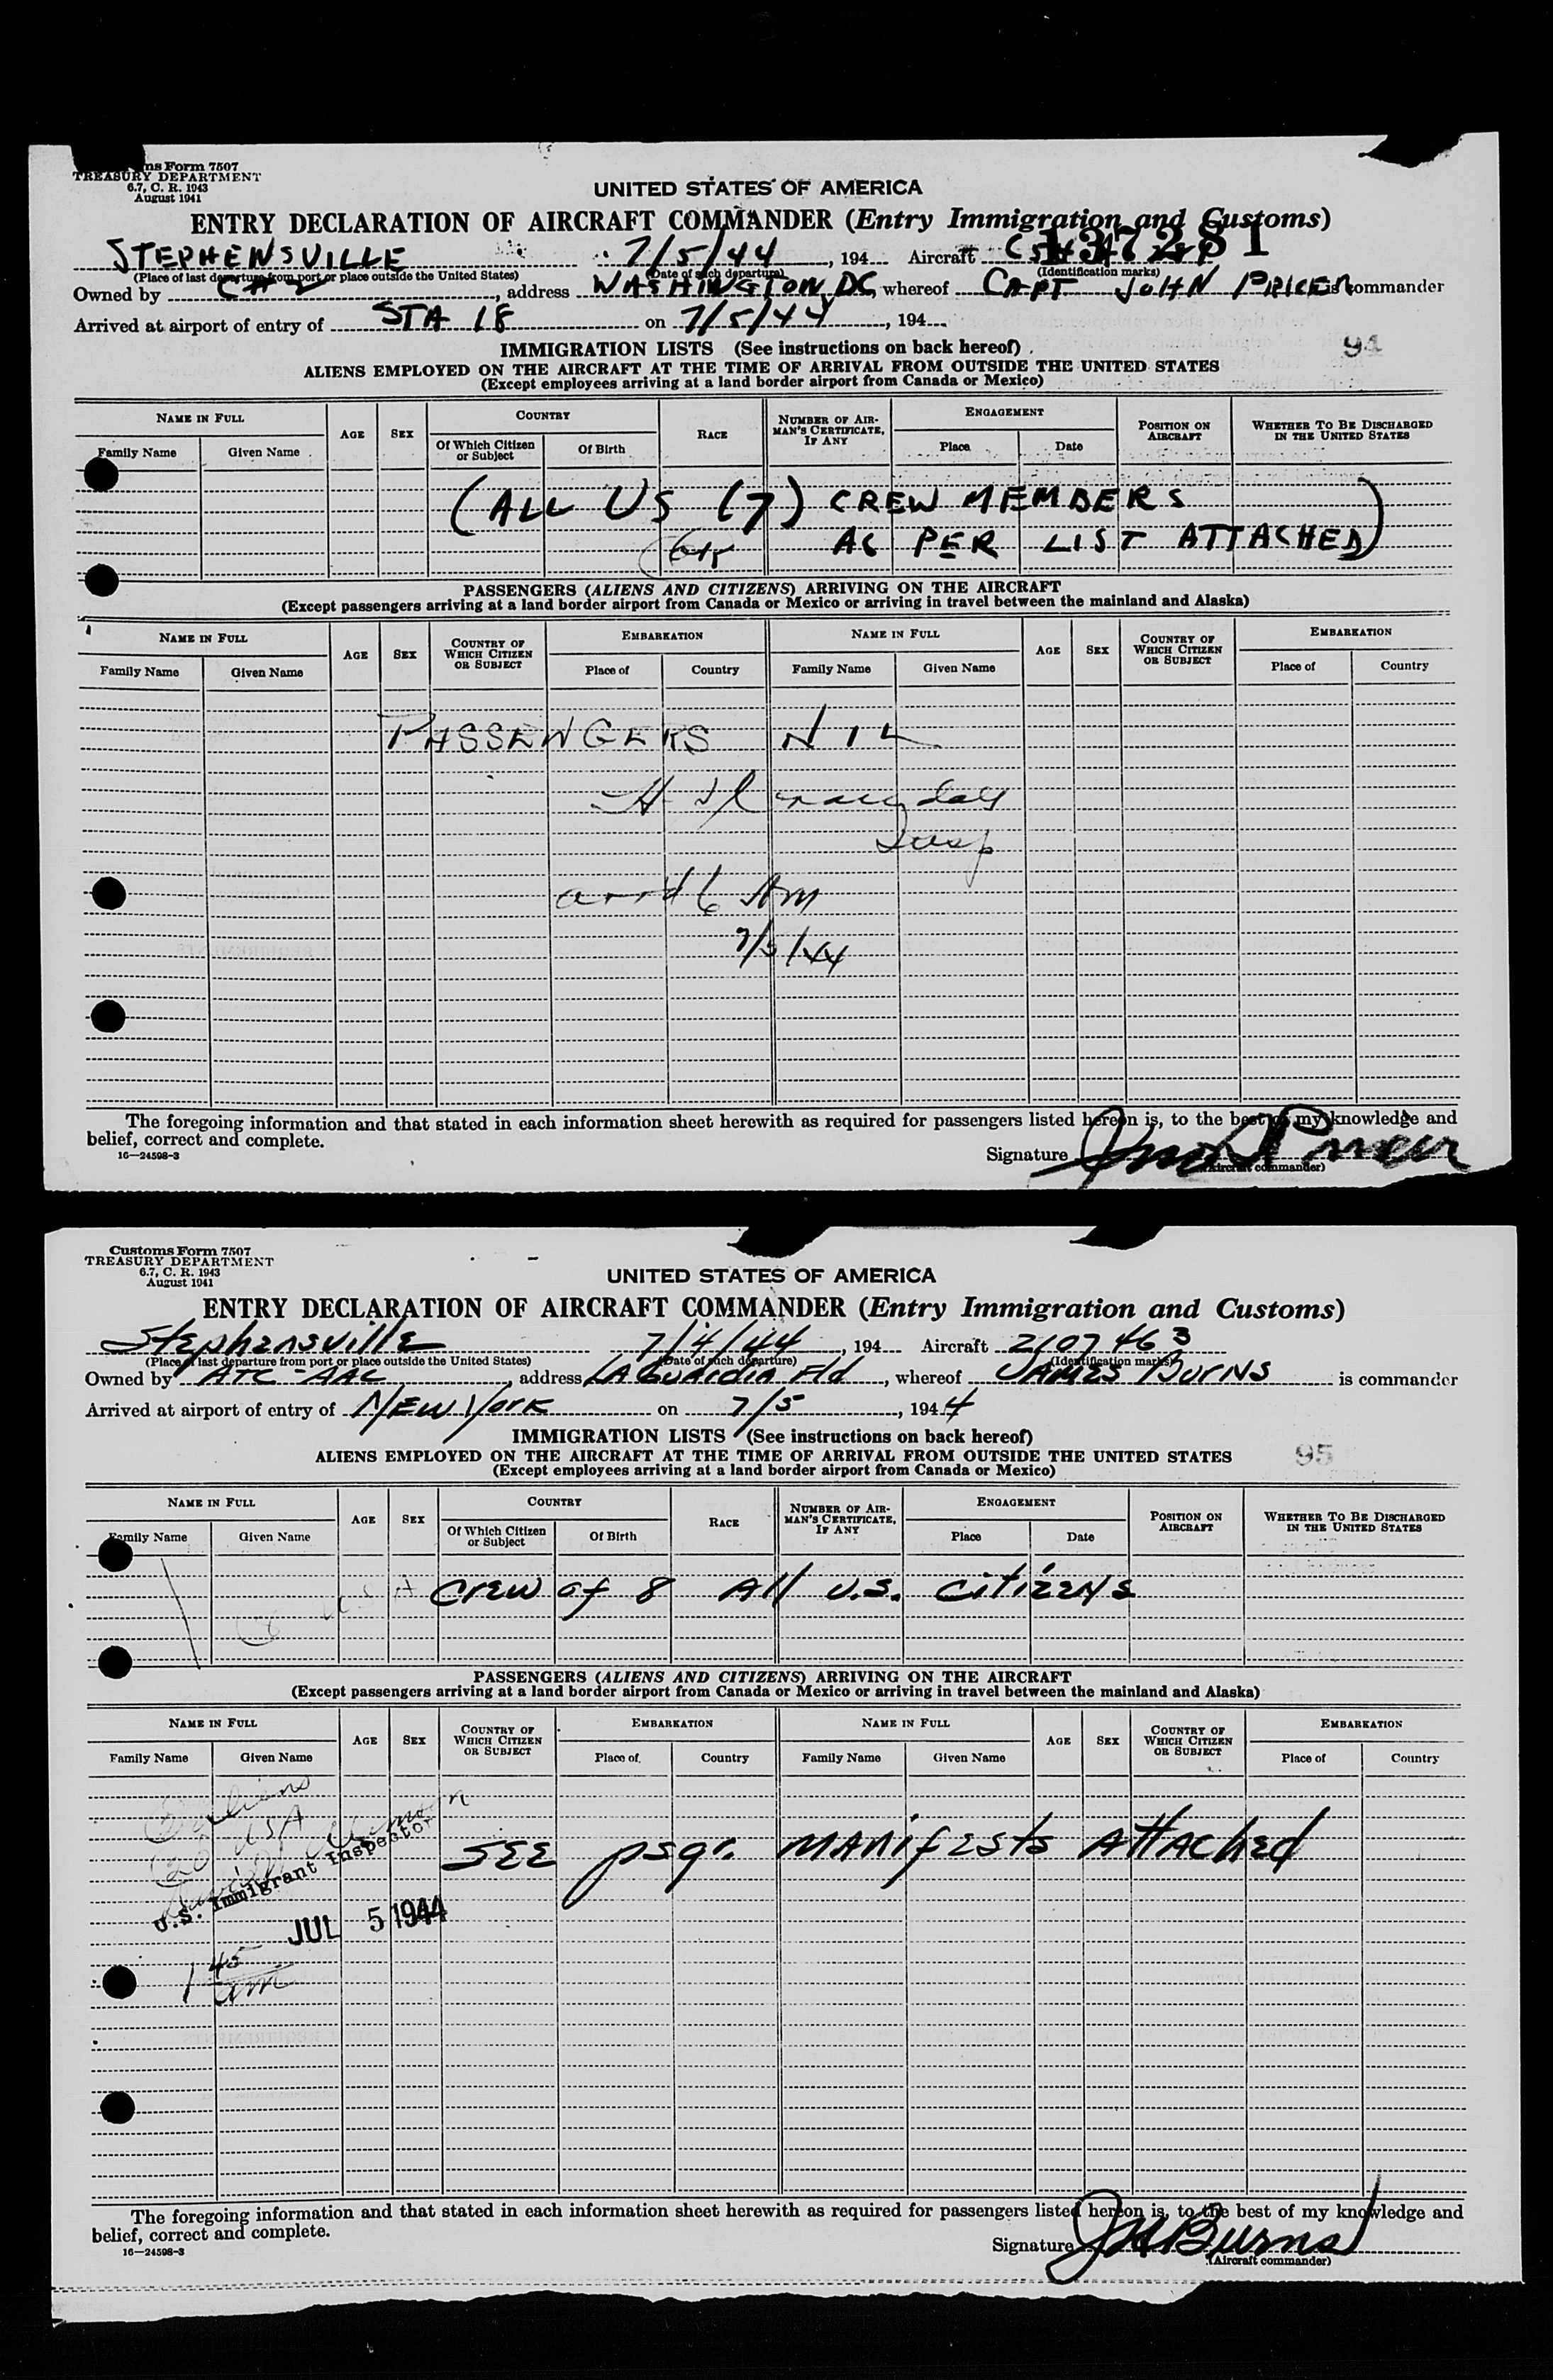 ns Form 7507
TREASURY DEPARTMENT
6.7, C. R. 1943
August 1941
UNITED STATES OF AMERICA
ENTRY DECLARATION OF AIRCRAFT COMMANDER (Entry Immigration and Customs)
137281
STEPHENSVILLE 7/5/44, 194 Aircraft
(Place of last departure from port or place outside the United States) (Date of such departure) (Identification marks)
Owned by , address WASHINGTON, DC, whereof CAPT JOHN PRICER is commander
Arrived at airport of entry of STA 18 on 7/5/44, 194
IMMIGRATION LISTS (See instructions on back hereof)
94
ALIENS EMPLOYED ON THE AIRCRAFT AT THE TIME OF ARRIVAL FROM OUTSIDE THE UNITED STATES
(Except employees arriving at a land border airport from Canada or Mexico)
NAME IN FULL AGE SEX COUNTRY RACE NUMBER OF AIRMAN'S CERTIFICATE, IF ANY ENGAGEMENT POSITION ON AIRCRAFT WHETHER TO BE DISCHARGED IN THE UNITED STATES
Family Name Given Name Of Which Citizen or Subject Of Birth Place Date
(ALL US (7) CREW MEMBERS
AS PER LIST ATTACHED)
PASSENGERS (ALIENS AND CITIZENS) ARRIVING ON THE AIRCRAFT
(Except passengers arriving at a land border airport from Canada or Mexico or arriving in travel between the mainland and Alaska)
NAME IN FULL AGE SEX COUNTRY OF WHICH CITIZEN OR SUBJECT EMBARKATION NAME IN FULL AGE SEX COUNTRY OF WHICH CITIZEN OR SUBJECT EMBARKATION
Family Name Given Name Place of Country Family Name Given Name Place of Country
PASSENGERS NIL
Insp
arrd 6 AM
7/5/44
The foregoing information and that stated in each information sheet herewith as required for passengers listed hereon is, to the best of my knowledge and
belief, correct and complete.
16—24598-3
Signature
(Aircraft commander)
Customs Form 7507
TREASURY DEPARTMENT
6.7, C. R. 1943
August 1941
UNITED STATES OF AMERICA
ENTRY DECLARATION OF AIRCRAFT COMMANDER (Entry Immigration and Customs)
Stephensville 7/4/44, 194 Aircraft 2107463
(Place of last departure from port or place outside the United States) (Date of such departure) (Identification marks)
Owned by ATC-AAC, address LA Guardia Fld, whereof JAMES BURNS is commander
Arrived at airport of entry of NEW York on 7/5, 1944
IMMIGRATION LISTS (See instructions on back hereof)
95
ALIENS EMPLOYED ON THE AIRCRAFT AT THE TIME OF ARRIVAL FROM OUTSIDE THE UNITED STATES
(Except employees arriving at a land border airport from Canada or Mexico)
NAME IN FULL AGE SEX COUNTRY RACE NUMBER OF AIRMAN'S CERTIFICATE, IF ANY ENGAGEMENT POSITION ON AIRCRAFT WHETHER TO BE DISCHARGED IN THE UNITED STATES
Family Name Given Name Of Which Citizen or Subject Of Birth Place Date
8 USA
Crew of 8 All U.S. Citizens
PASSENGERS (ALIENS AND CITIZENS) ARRIVING ON THE AIRCRAFT
(Except passengers arriving at a land border airport from Canada or Mexico or arriving in travel between the mainland and Alaska)
NAME IN FULL AGE SEX COUNTRY OF WHICH CITIZEN OR SUBJECT EMBARKATION NAME IN FULL AGE SEX COUNTRY OF WHICH CITIZEN OR SUBJECT EMBARKATION
Family Name Given Name Place of Country Family Name Given Name Place of Country
aliens
20 USA
SEE psgr. MANifests AttAchEd
U.S. Immigrant Inspector
JUL 5 1944
1 45 am
The foregoing information and that stated in each information sheet herewith as required for passengers listed hereon is, to the best of my knowledge and
belief, correct and complete.
16—24598-3
Signature JHBurns
(Aircraft commander)